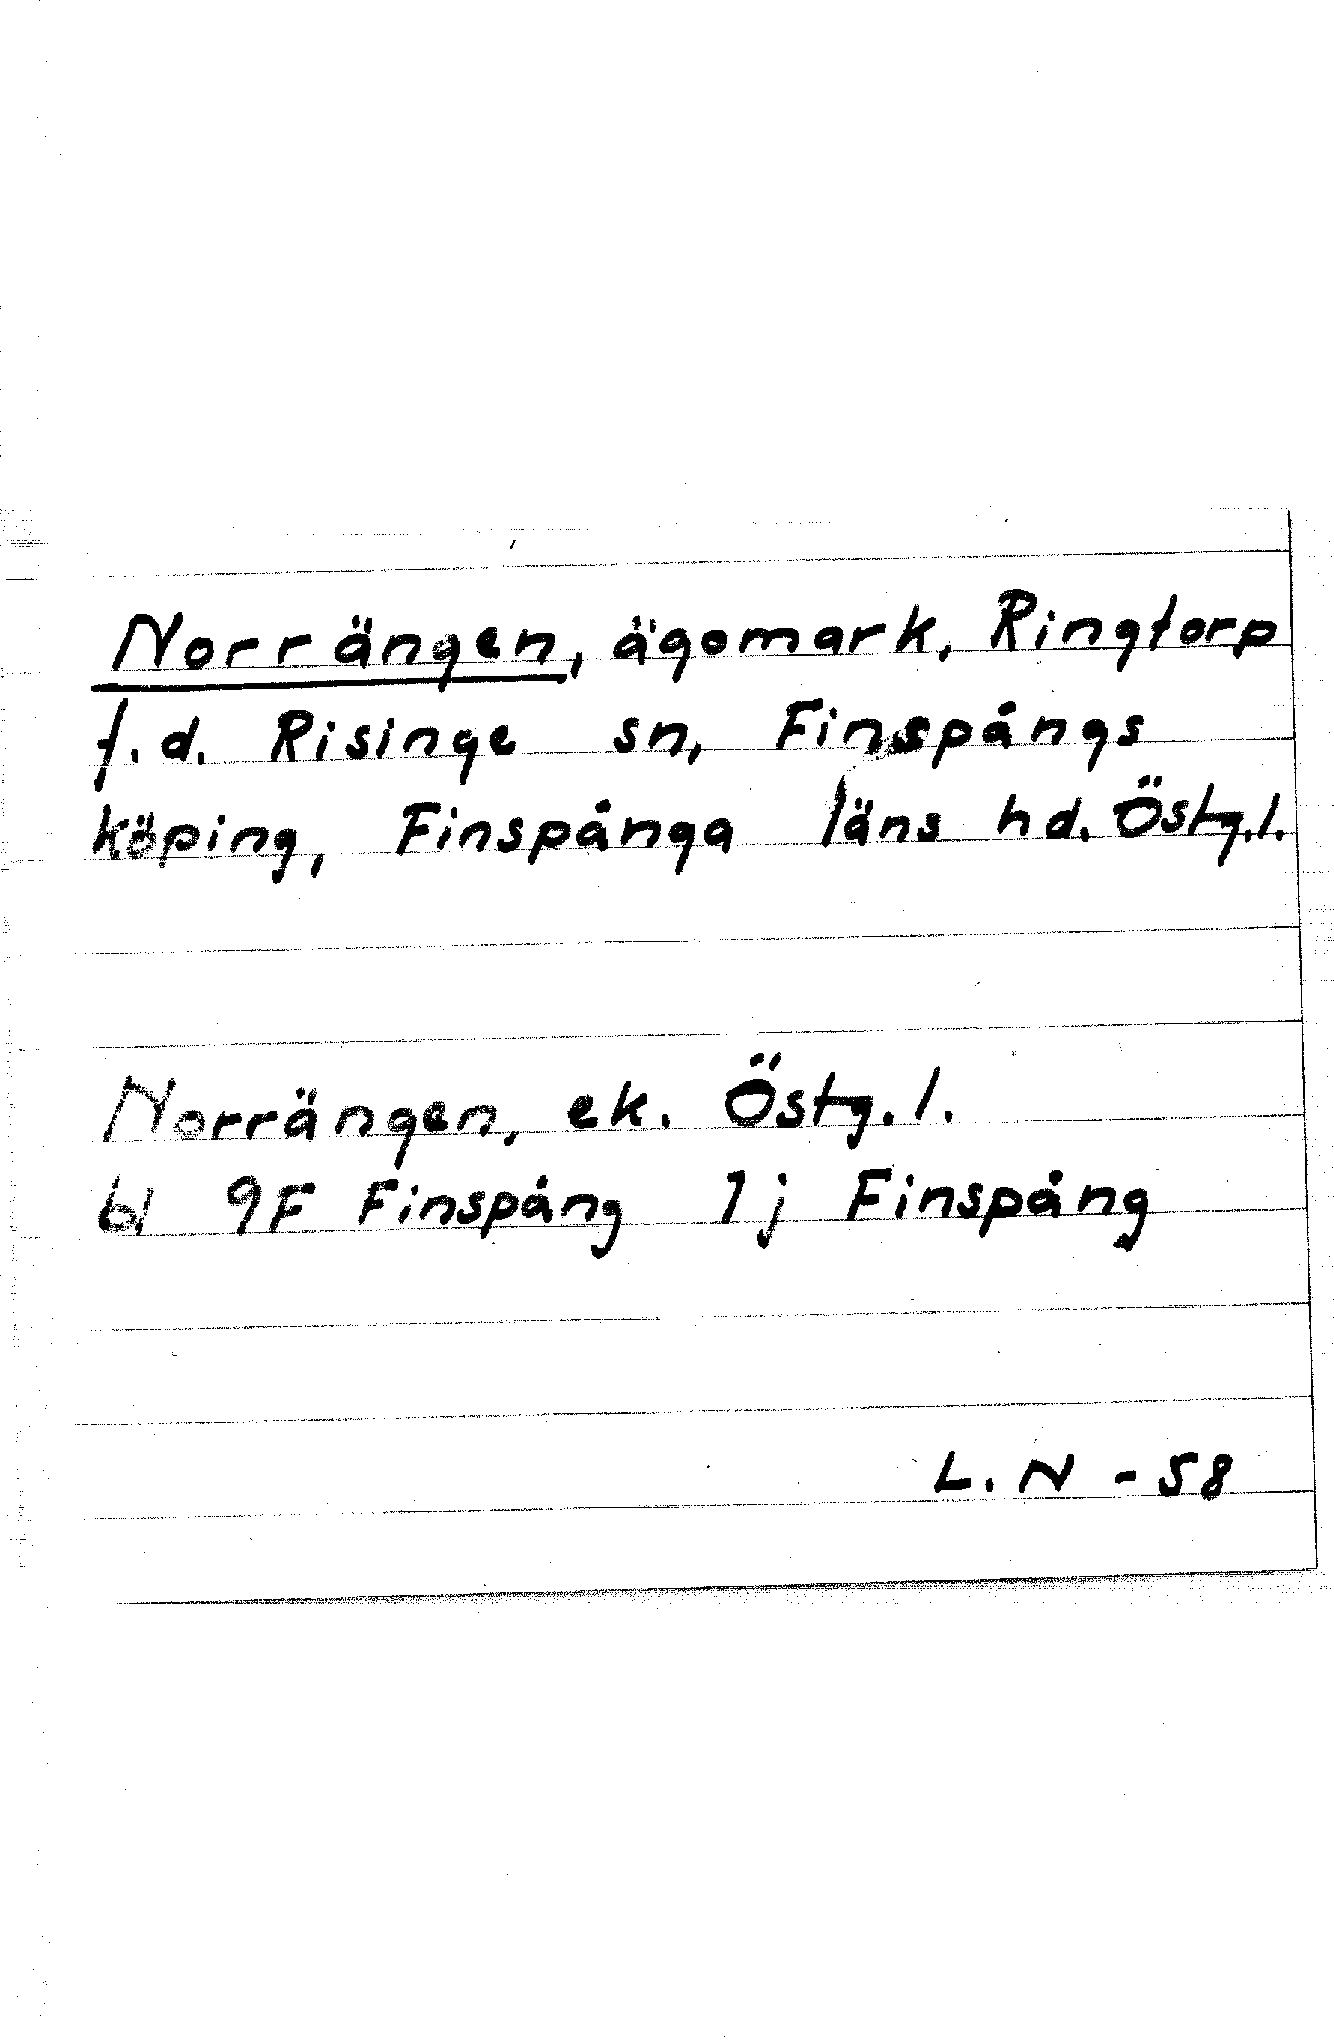 Norrängen, ägomark, Ringtorp
f.d. Risinge sn, Finspångs
köping, Finspånga läns hd. Östg.l.
Norrängen, ek. Östg.l.
bl 9F Finspång 1j Finspång
L.N -58